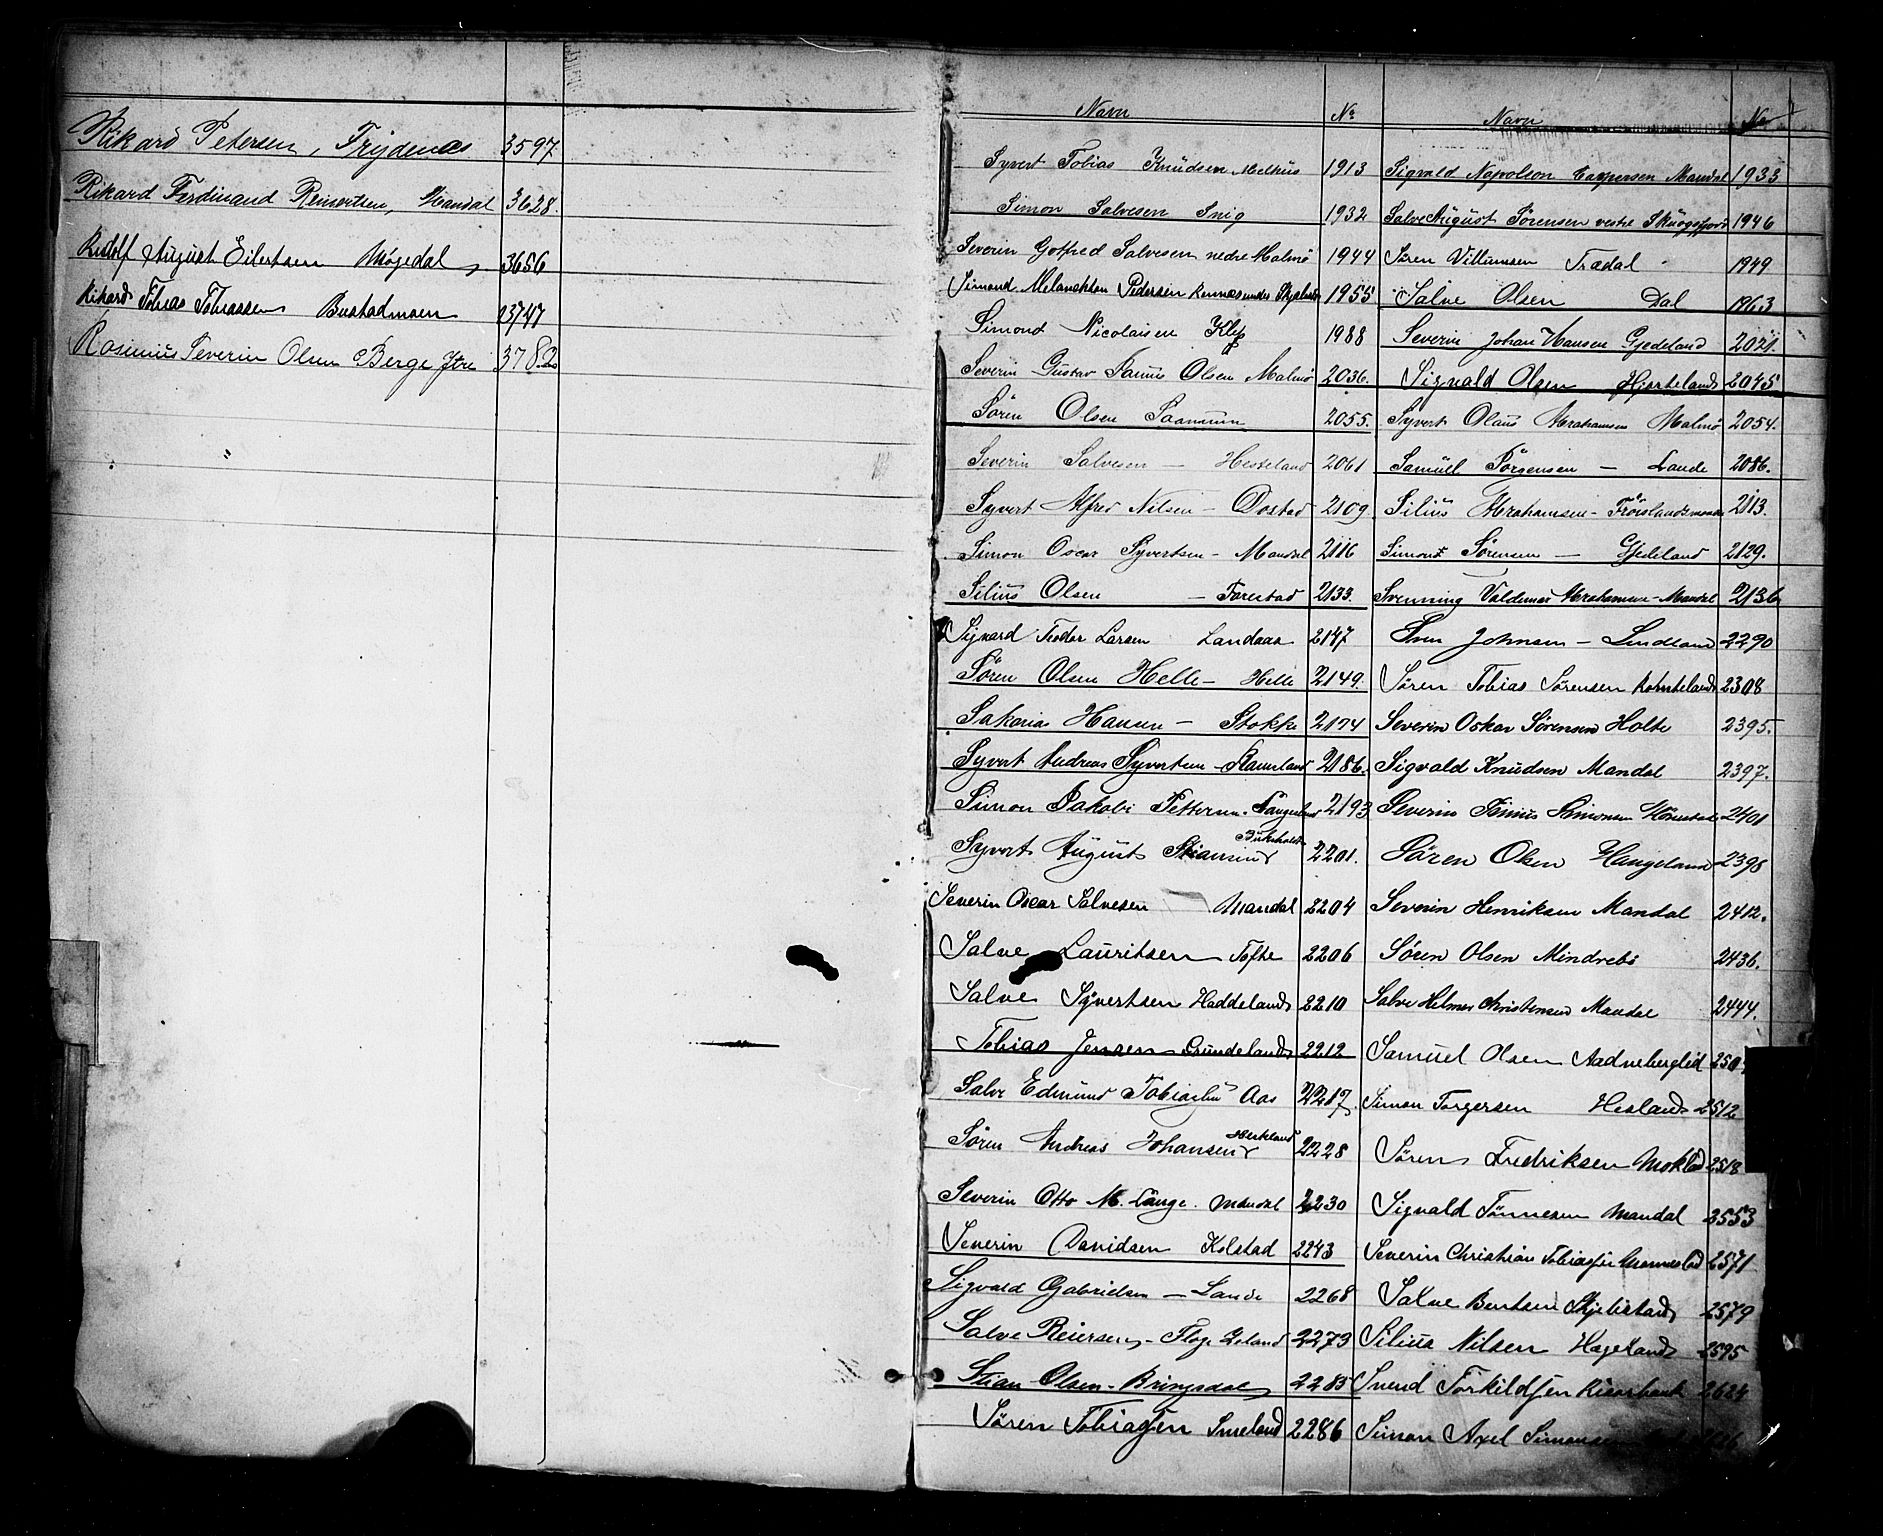 Rikard Petersen, Frydenæs 3597
Rikard Ferdinand Reinertsen, Mandal 3628.
Rudolf August Eilertsen Møgedal, 3656
Rikard Tobias Tobiassen Bustadmoen 3747
Rasmus Severin Olsen Berge Ytre 3782
Navn No Navn No
Syvert Tobias Knudsen Melhus 1913 Sigvald Casparsen Mandal 1933
Simon Salvesen Snig 1932 Salve August Sørensen vestre Skuogsfjord 1946
Severin Gotfred Salvesen nedre Malmö 1944 Sören Villumsen Trædal 1949
Simond Melanchton Pedersen 1955 Salve Olsen Dal 1963
Simond Nicolaisen Klep 1988 Severin Johan Hansen Gjedeland 2021.
Severin Gustav Olsen Malmö 2036. Sigvald Olsen Hjortelands 2045
Sören Olsen Saanum 2055. Syvert Olaus Abrahamsen Malmö 2054.
Severin Salvesen — Hesteland 2061 Samuel Jörgensen — Lande 2086.
Syvert Alfred Nilsen — Ovstad 2109 Silius Abrahamsen - Fröislandsmoen 2113.
Simon Oscar Syvertsen - Mandal 2116 Simon Sörensen — Gjedeland 2129.
Silius Olsen — Farestad 2133. Svenning Valdemar Abrahamsen - Mandal 2136
Sigvard Teodor Larsen Landaas 2147 Sven Johnsen — Lindland 2290
Søren Olsen Helle - Helle 2149. Søren Tobias Sørensen 2308
Sakarias Hansen — Stokke 2174 Severin Oskar Sørensen Holte 2395.
Syvert Andreas Syvertsen - 2186. Sigvald Knudsen Mandal 2397.
Simon Jakobi Pettersen. 2193 Severin Simonsen 2401
Syvert August Stiansen Birkeholte 2201. Sören Olsen Haugeland 2398
Severin Oscar Salvesen Mandal 2204 Severin Henriksen Mandal 2412.
Salve Lauritsen Tofte 2206 Søren Olsen Mindrebö 2436.
Salve Syvertsen Haddeland 2210 Salve Helmer Christensen Mandal 2444.
Tobias Jensen Grundeland 2212 Samuel Olsen Aadneberglid 250
Salve Edmund Tobiassen Aas 2217. Simon Torgersen Hesland 2512
Søren Andreas Johansen 2228 Søren Fredriksen 2518
Severin Otto M. Lange. Mandal 2230 Sigvald Tönnesen Mandal 2553
Severin Davidsen Kolstad 2243 Severin Christian Tobiassen 2571
Sigvald Gabrielsen — Lande 2268 Salve Bentsen 2579
Salve Reiersen - 2273 Silius Nilsen Hageland 2595
Stian Olsen - Bringsdal 2285 Svend Torkildsen Risørbank 2624
Søren Tobiassen 2286 Simon Axel Simonsen